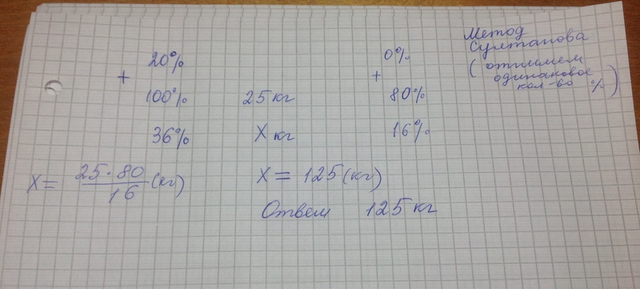 Метод
Султанова
(отнимем
одинаковое
кол-во %)
20% 0%
+ +
100% 25 кг 80%
36% X кг 16%
X = 25·80/16 (кг) X = 125 (кг)
Ответ 125 кг